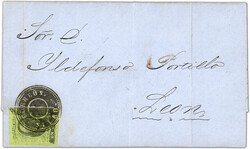 Sor. D.
Ildefonso Portillo
Leon